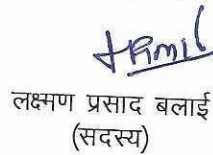 लक्ष्मण प्रसाद बलाई
(सदस्य)